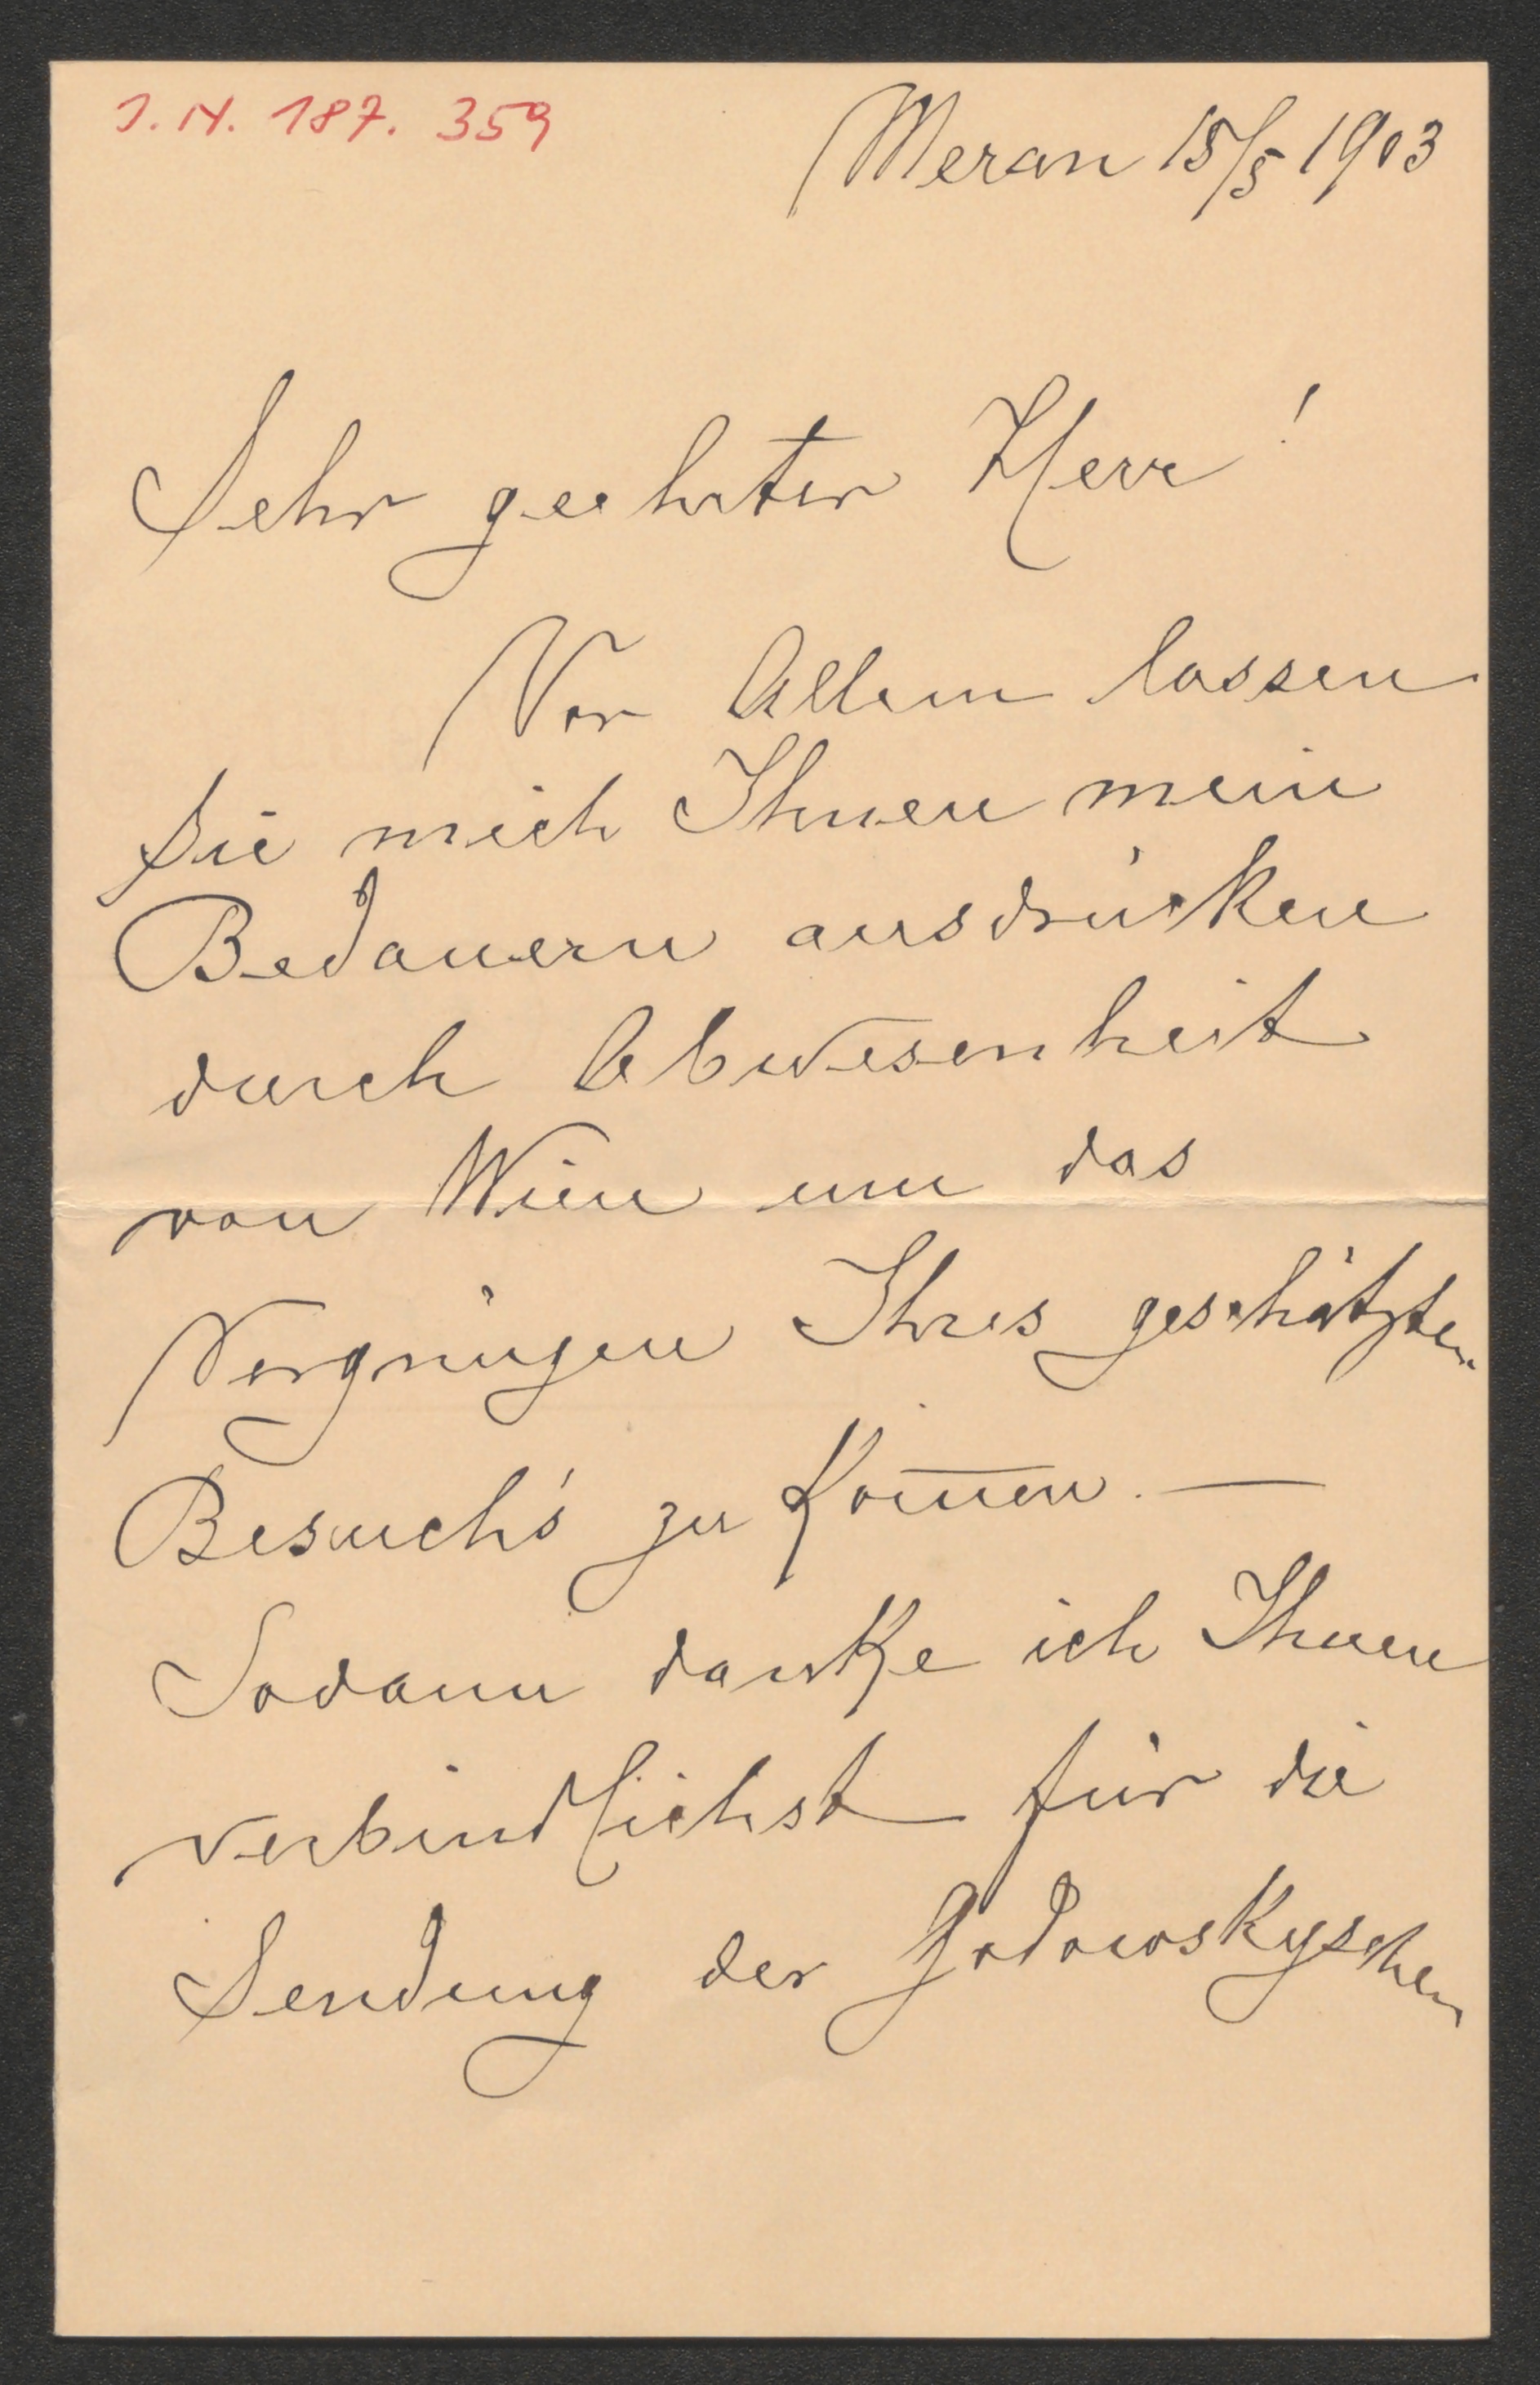 J.N. 187.359
Meran 15/5 1903
Sehr geehrter Herr!
Vor Allem lassen
Sie mich Ihnen mein
Bedauern ausdrücken
durch Abwesenheit
von Wien um das
Vergnügen Ihres geschätzten
Besuch's zu kom̅en. —
Sodann danke ich Ihnen
verbindlichst für die
Sendung der Godowskyschen